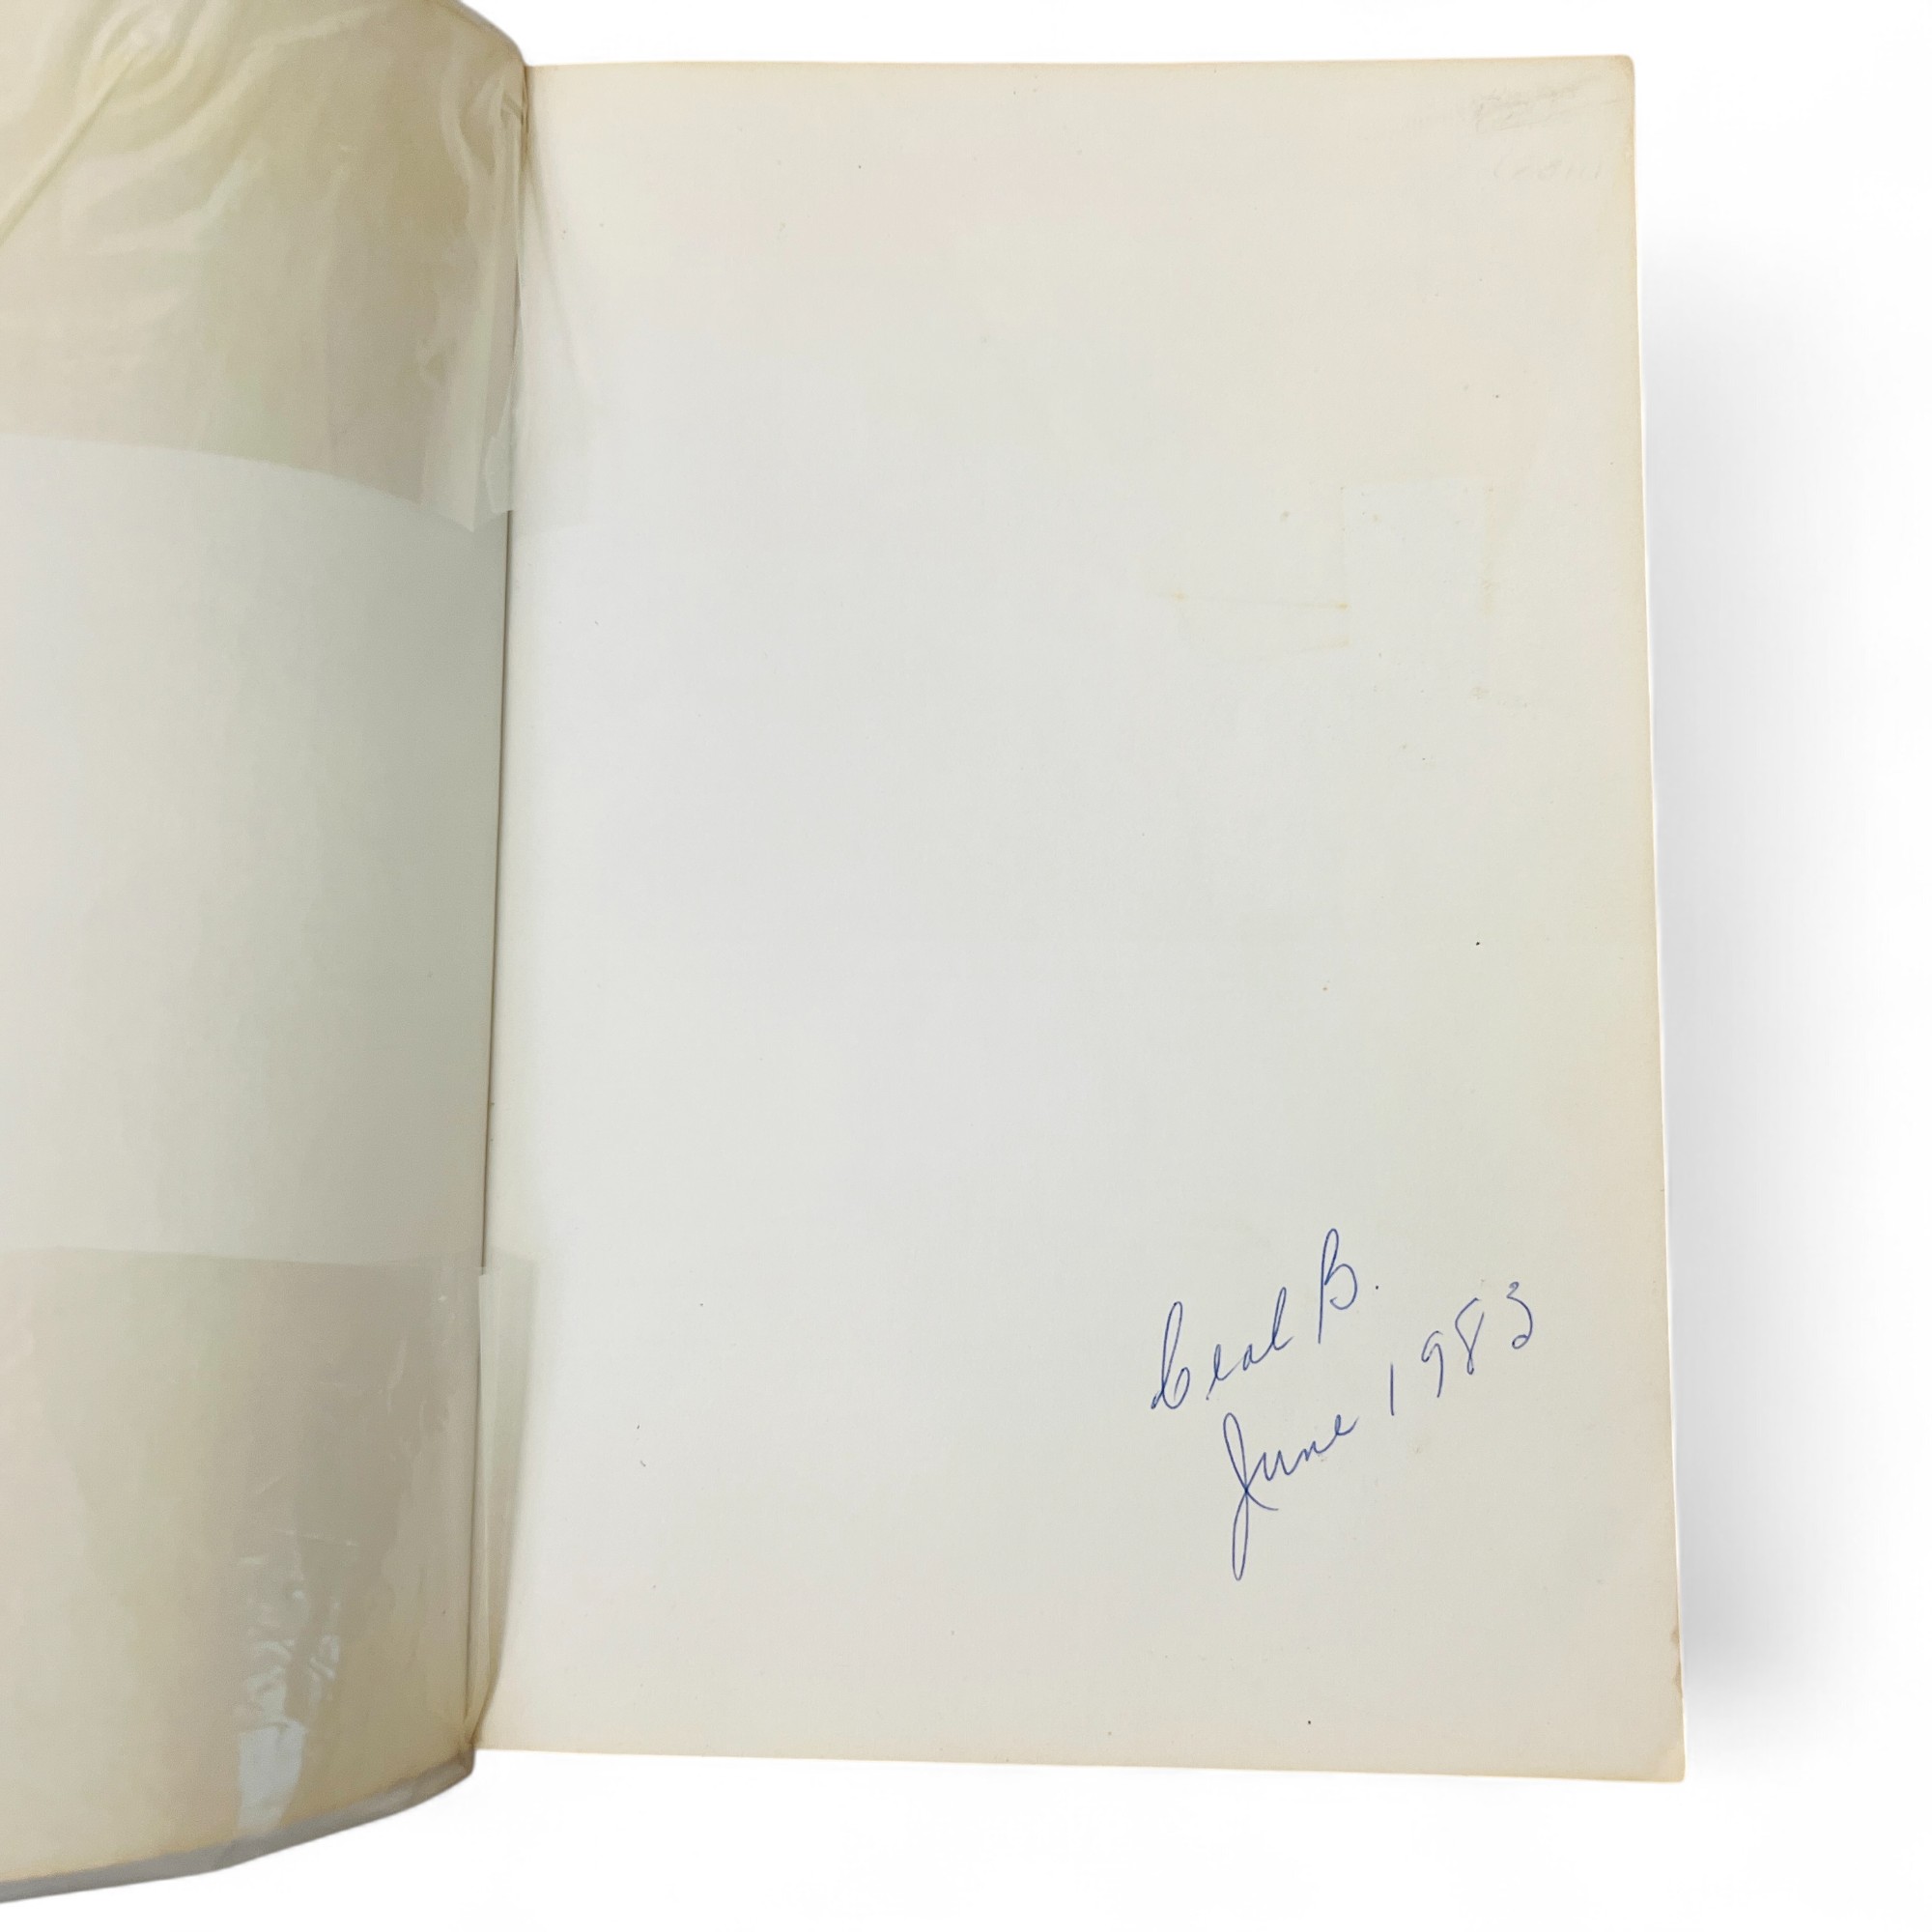 Ceal B.
June 1983